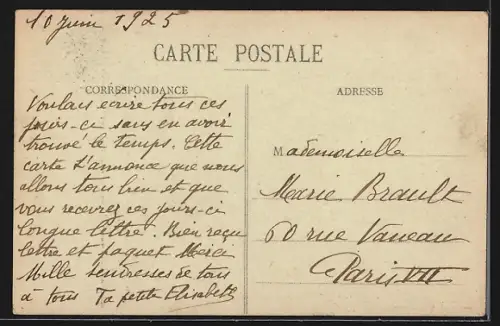 10 juin 1925
CARTE POSTALE
CORRESPONDANCE
ADRESSE
Voulais ecrire tous ces
jours-ci sans en avoir
trouvé le temps. Cette
carte t'annonce que nous
allons tous bien et que
vous recevrez ces jours-ci
longue lettre. Bien reçu
lettre et paquet Merci
Mille tendresses de tous
à tous Ta petite Elisabeth
Mademoiselle
Marie Brault
60 rue Vaneau
Paris VII